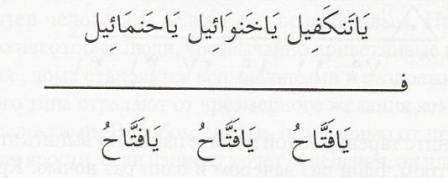 يَاتَنكَفيل يَاخَنوَائيل يَاحَنمَائيل
ف
يَافَتَّاحُ يَافَتَّاحُ يَافَتَّاحُ